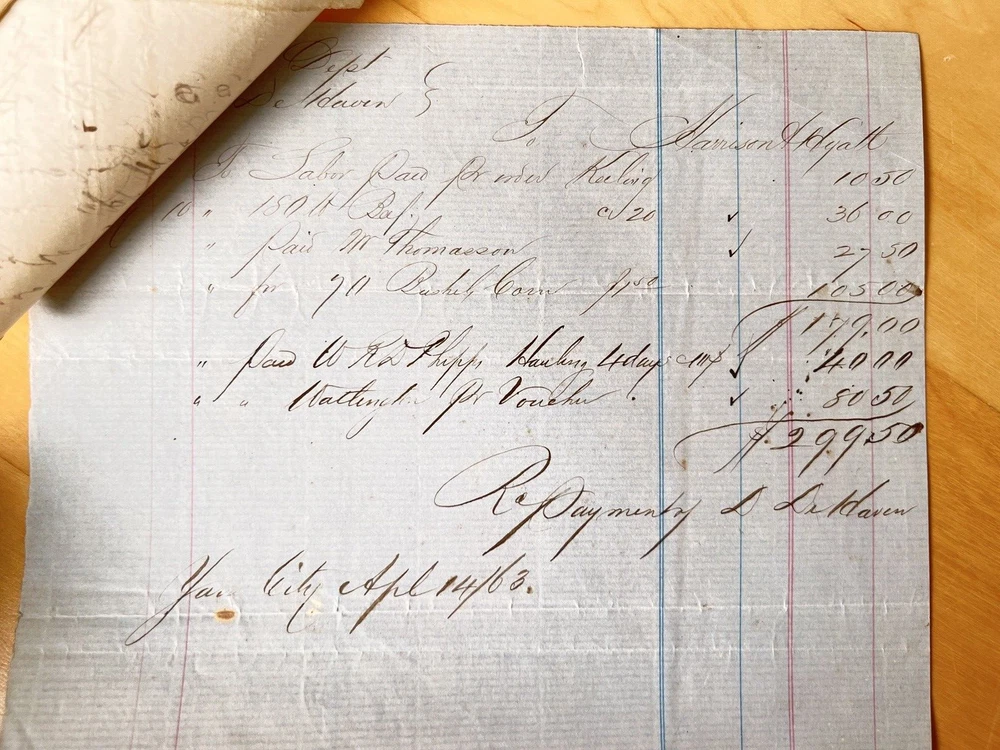 Dept
De Haven }
To Harrison & Hyatt
To Labor Paid pr order Keeling 10 50
10 " 180 lb @ 20 ✓ 36 00
" Paid M Thomasson ✓ 27 50
" for 70 Bushels Corn $1.50 105 00
$179.00
" Paid W R D Phipps Hauling 4 days ✓ 40 00
" " pr Voucher ✓ 80 50
$299.50
Rc Payment of D De Haven
City Apl 14/63.